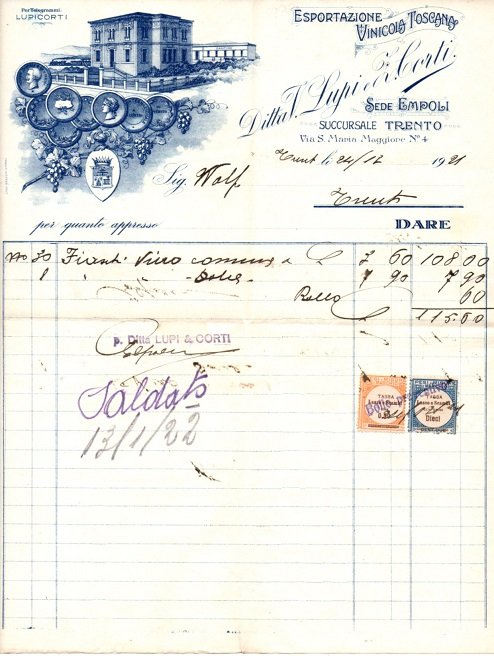 Per Telegrammi:
LUPICORTI
ESPORTAZIONE
VINICOLA TOSCANA
Ditta V. Lupi & F. Corti.
SEDE EMPOLI
SUCCURSALE TRENTO
Via S. Maria Maggiore Nº 4
Trento li 24/12 1921
Sig. Wolf
Trento
per quanto appresso DARE
No 30 Fiaschi Vino comune a L 3 60 108.00
1 " " 7 90 7 90
Bollo 60
L 115.50
p. Ditta LUPI & CORTI
Saldato
13/1/22
TASSA
TASSA
Dieci